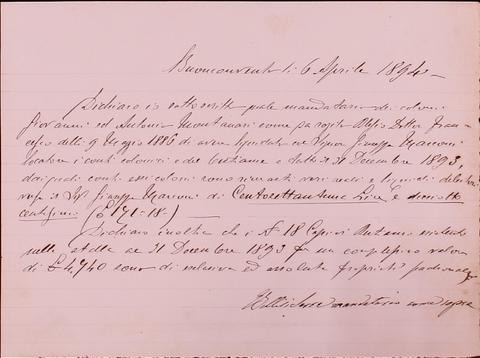 Buonconvento li 6 Aprile 1894
Dichiaro io sottoscritto quale mandatario dei coloni
Giovanni ed Antonio Montanari come da rogito
delli 9 Maggio 1886 di avere liquidato col Signor Giuseppe Marconi
i conti colonici e del bestiame a tutto il 31 Dicembre 1893,
dai quali conti essi coloni sono rimasti
Giuseppe Marconi di Centosettantuna Lire e diciotto
centesimi (£ 171:18.)
Dichiaro inoltre che i N° 18 Capi esistenti
nella stalla al 31 Dicembre 1893 per un complessivo valore
di £ 4,740 sono di esclusiva ed assoluta proprietà padronale
mandatario come sopra